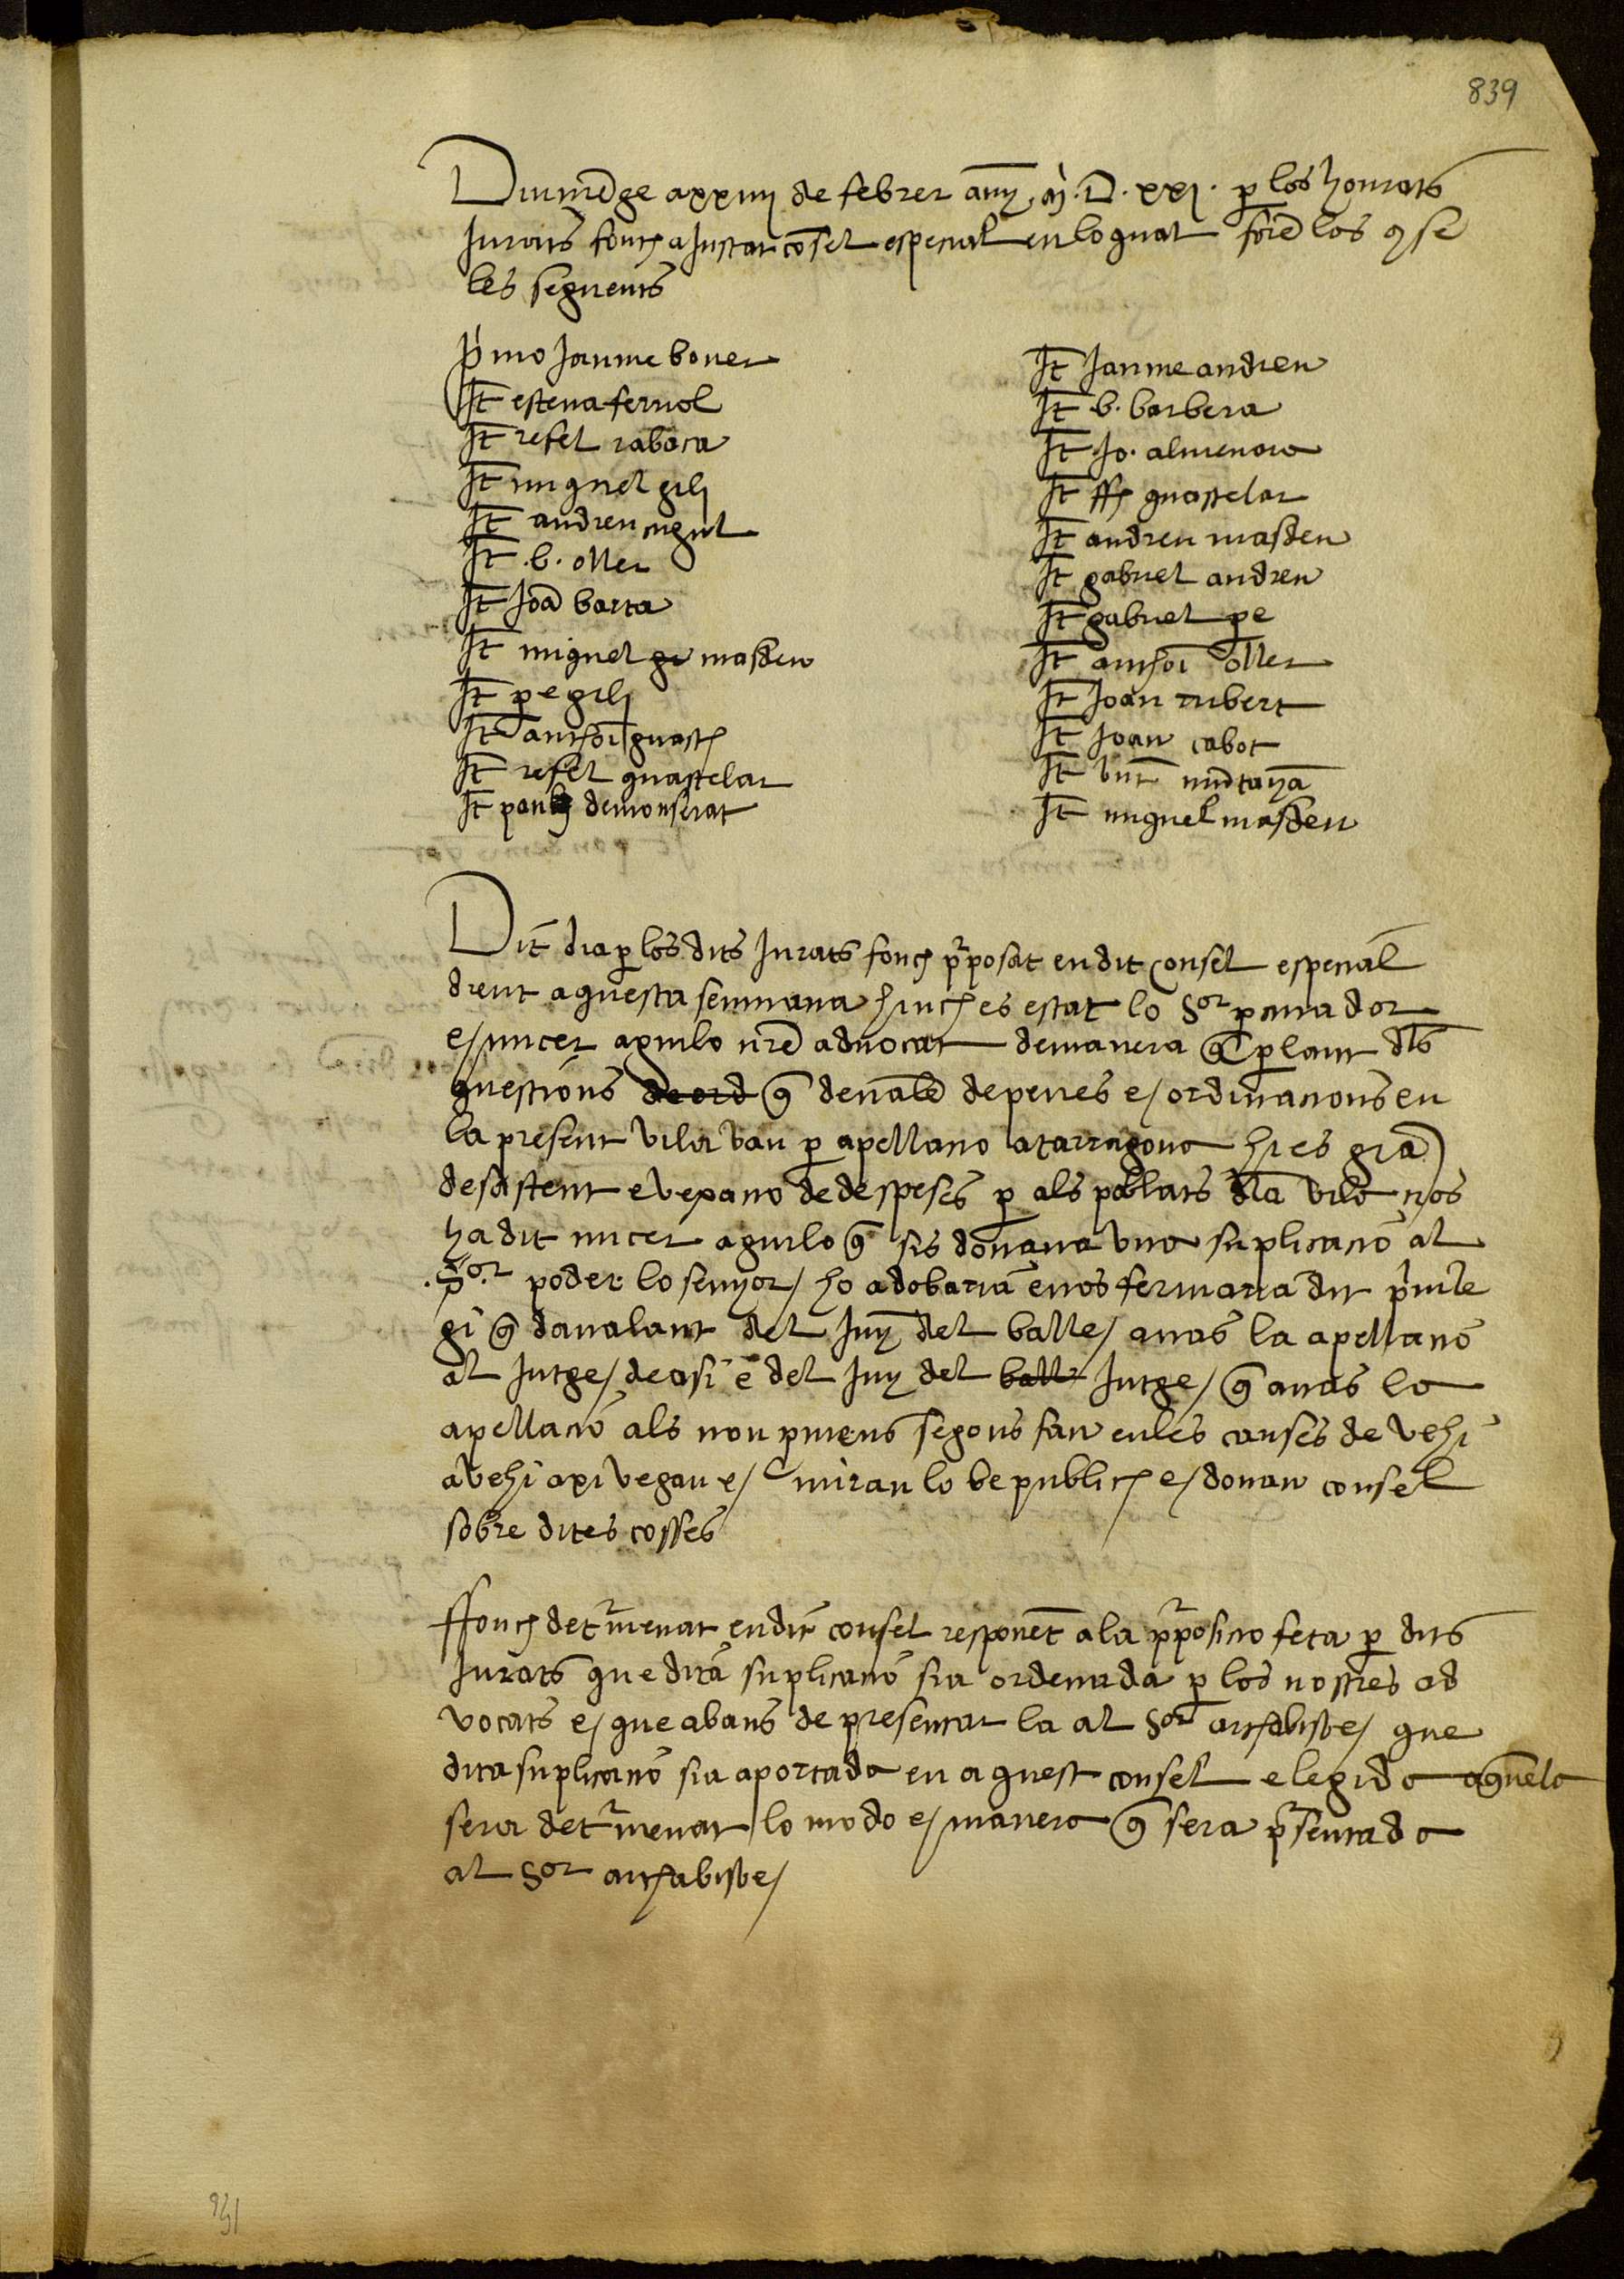 839
Diumẽge a xxiiij de febrer any .M.D.xxj. p los honrats
Jurats fonch aJustat cõsel especial en lo qual forẽ los 9se
les seguents
Pºmo Jaume bover
It esteva ferriol
It refel rabaca
It miquel gili
It andreu cugul
It .b. oller
It Joã barta
It miquel gi masdeu
It pe gili
It anthoi guasch
It refel guastelar
It pau demonserat
It Jaume andreu
It .b. barbera
It .Jo. almenara
It ffº guastelar
It andreu masdeu
It gabriel andreu
It gabriel pe
It anthoi oller
It Joan rubert
It Joan cabot
It mũtanyã
It miquel masdeu
Dit dia p los dits Jurats fonch pposat en dit consel especial
dient aquesta semmana hinch es estat lo Sor pcurador
e micer aguilo nrẽ advocat de manera q̃ parlant dls
questions de ord q̃ devalẽ de penes e ordinacions en
la present vila van p apellacio a tarragona hi es grã
desastent e vexacio de despeses p als poblats dla vila nos
ha dit micer aguilo q̃ sis donava una suplicacio al
.Sor. poder lo senyor ho adobaria e nos fermaria dit pvile
gi q̃ davalant del Juy del balle anas la apellacio
al Jutge de asi e del Juy del balle Jutge q̃ anas la
apellacio als nou pmens segons fan en les causes de vehi
a vehi axi vegau e mirau lo be publich e donau consel
sobre dites cosses
ffonch detmenat en dit consel responẽt a la pposicio feta p dits
Jurats que dita suplicacio sia ordenada p los nostres ad
vocats e que abans de presentar la al Sor archabisbe que
dita suplicacio sia aportada en aquest consel e legida aq̃vela
sera detmenat lo modo e manera q̃ sera psentada
al Sor archabisbe